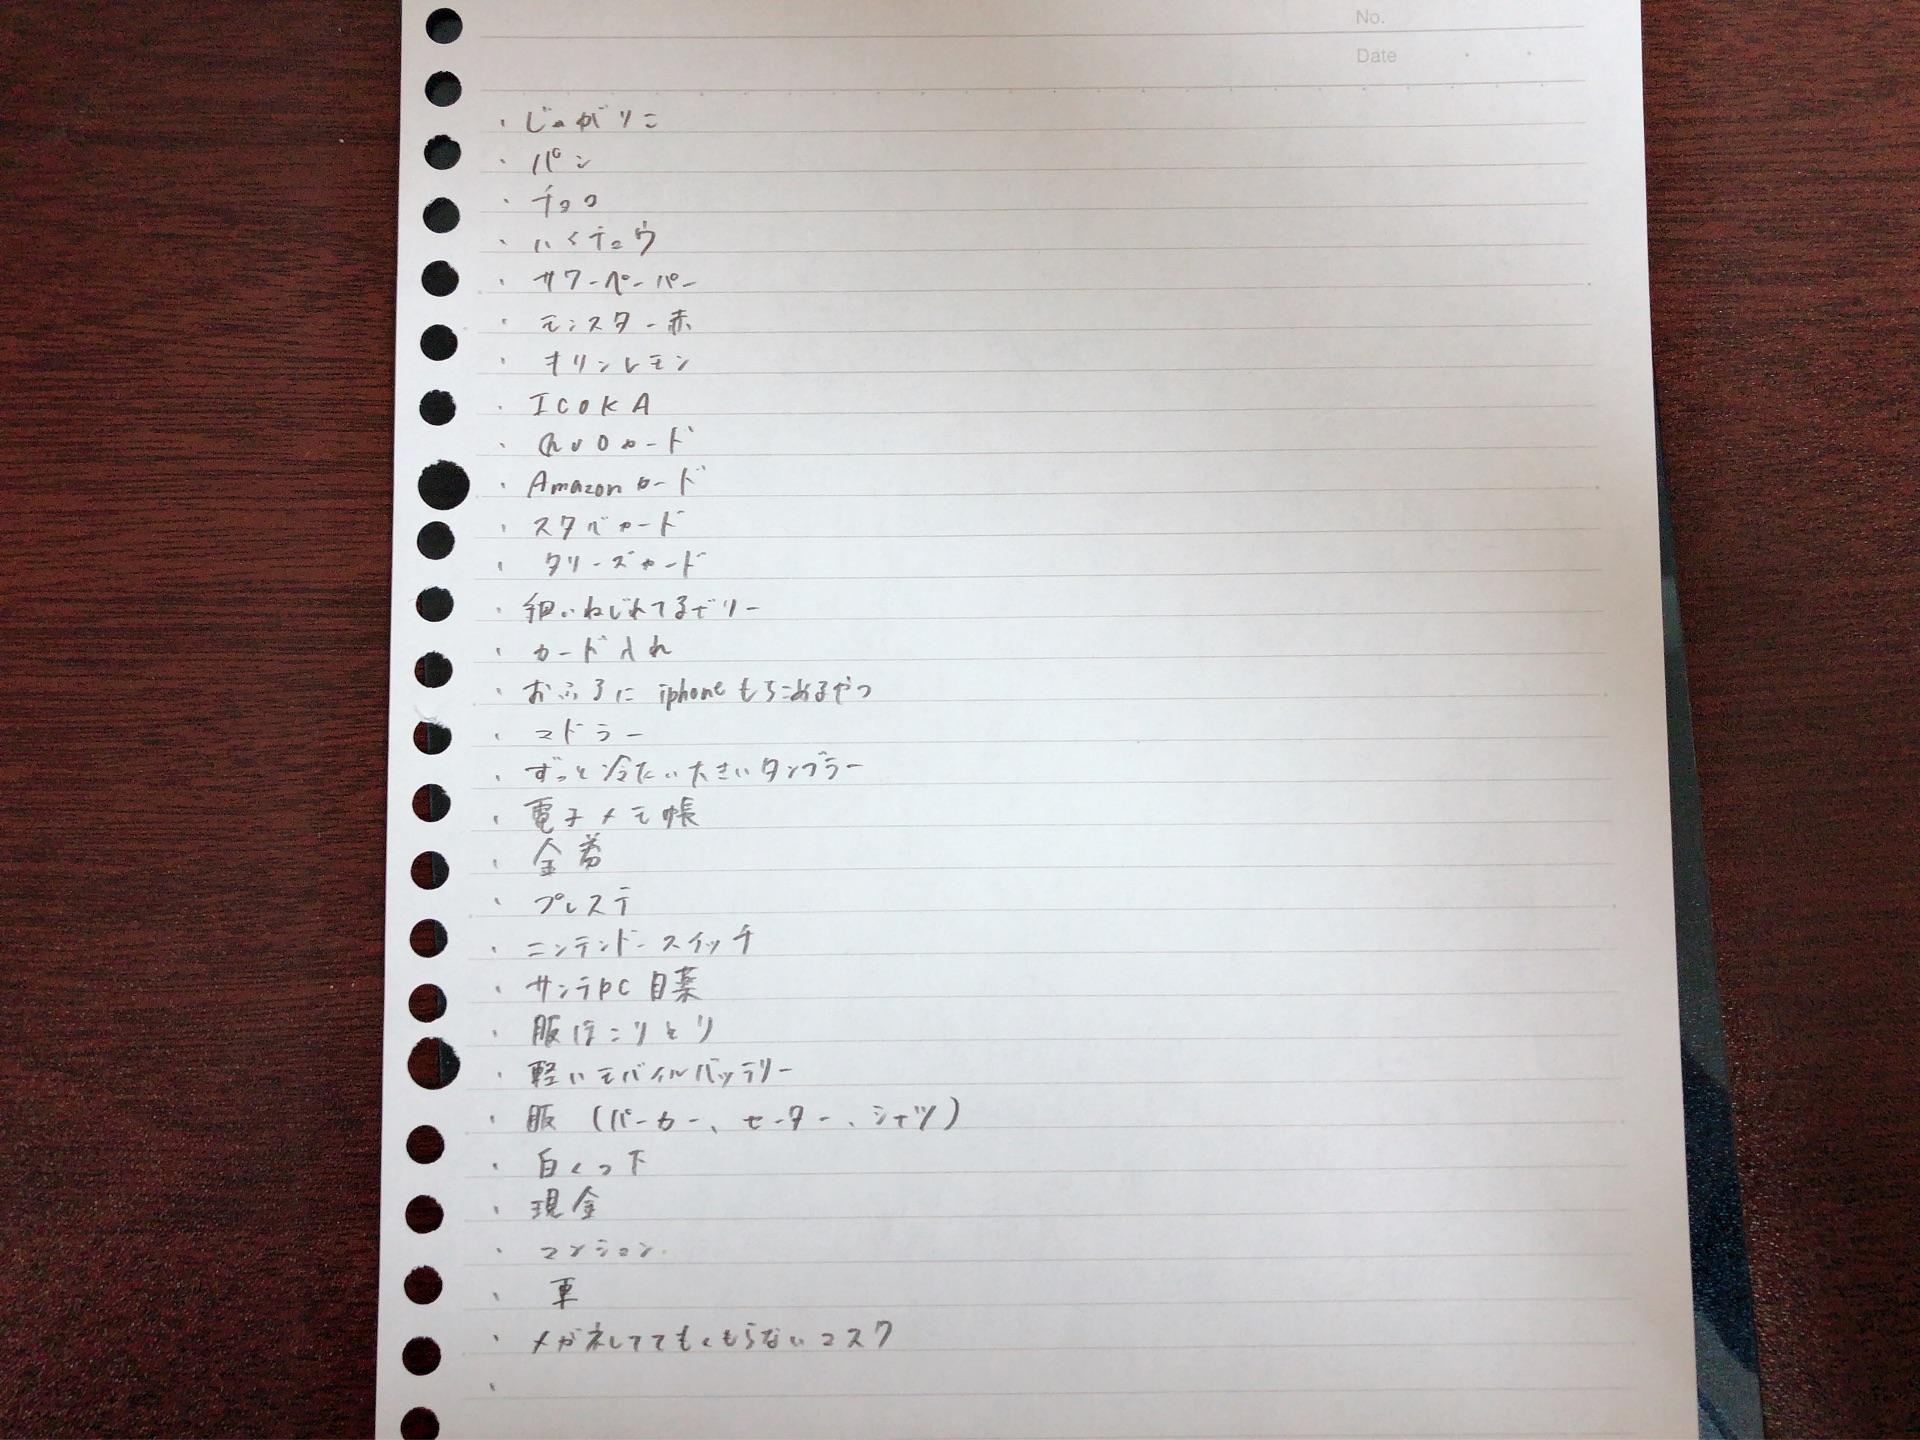 No.
Date
・じゃがりこ
・パン
・チョコ
・ハイチュウ
・サワーペーパー
・モンスター赤
・キリンレモン
・ICOKA
・QUOカード
・Amazonカード
・スタバカード
・タリーズカード
・細いねじれてるゼリー
・カード入れ
・おふろにiphoneもちこめるやつ
・マドラー
・ずっと冷たい大きいタンブラー
・電子メモ帳
・金券
・プレステ
・ニンテンドースイッチ
・サンテPC目薬
・服ほこりとり
・軽いモバイルバッテリー
・服(パーカー、セーター、シャツ)
・白くつ下
・現金
・マンション
・車
・メガネしててもくもらないマスク
・